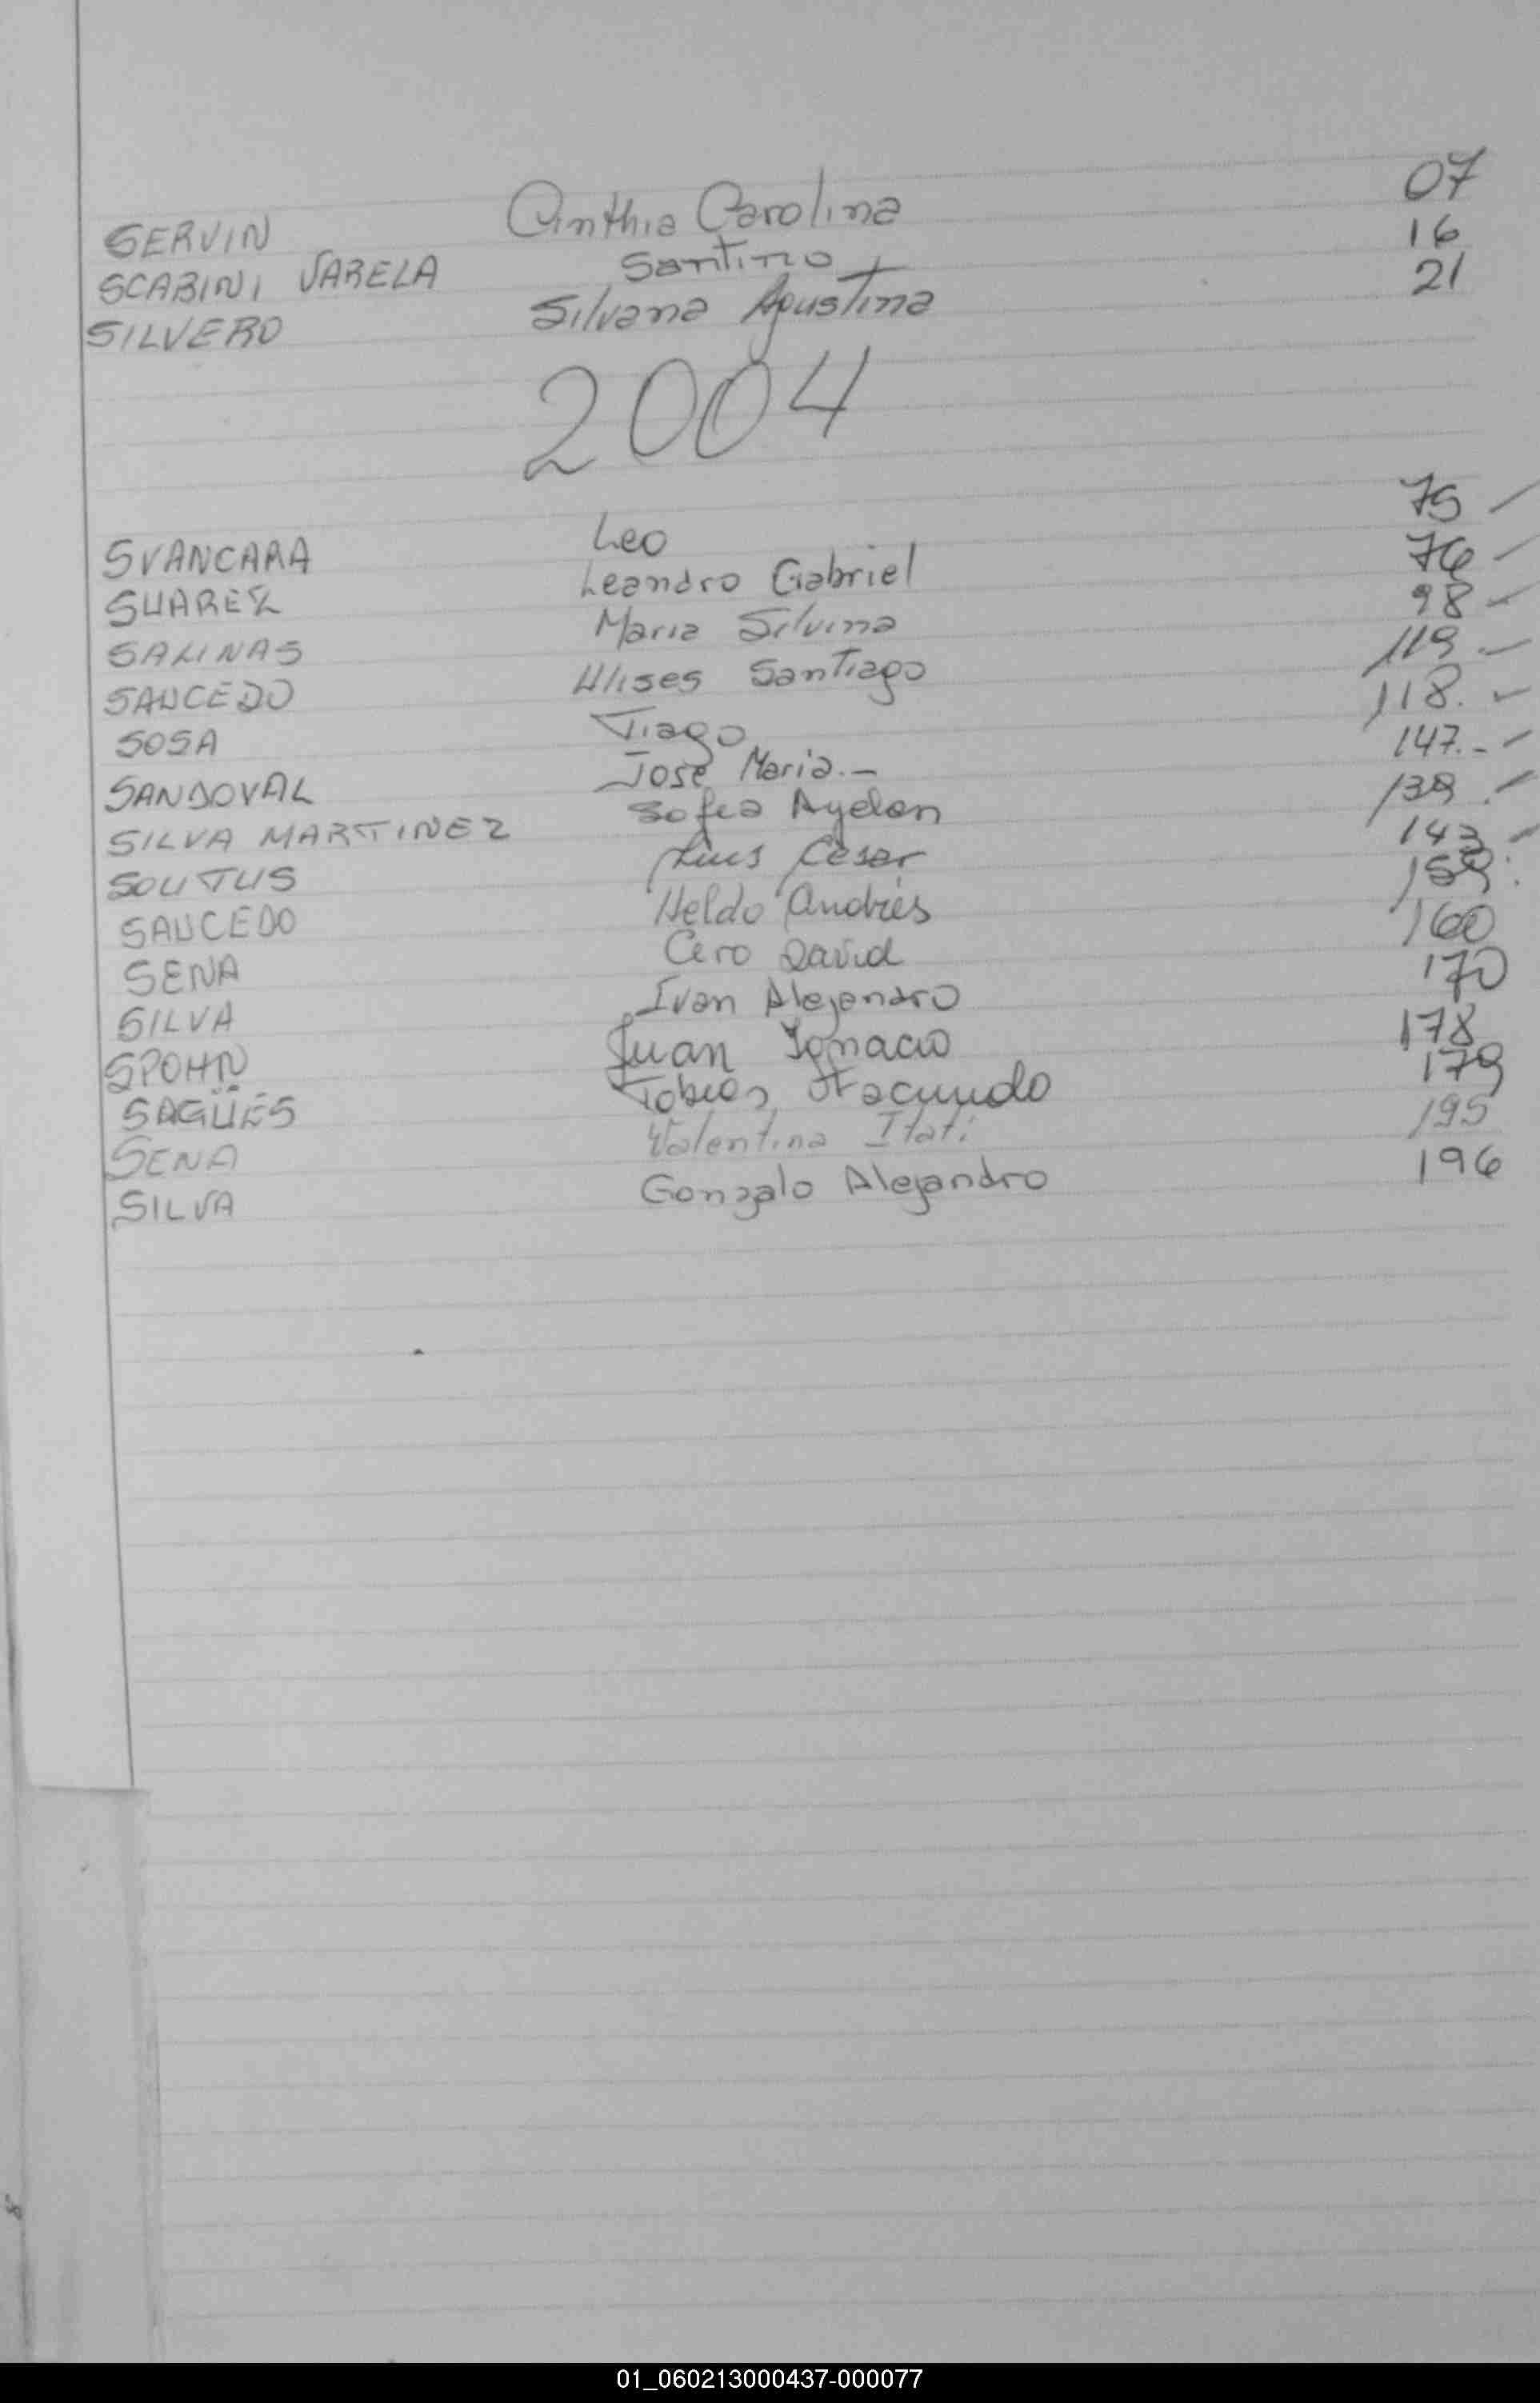 SERVIN Cinthia Carolina 07
SCABINI VARELA Santino 16
SILVERO Silvana Agustina 21
2004
SVANCARA Leo 75
SUAREZ Leandro Gabriel 76
SALINAS Maria Silvina 98
SAUCEDO Ulises Santiago 119
SOSA Tiago 118.
SANDOVAL José Maria.- 147.-
SILVA MARTINEZ Sofia Ayelen 139
SOUTUS Luis César 143
SAUCEDO Heldo Andrés 159
SENA Ciro David 160
SILVA Ivan Alejandro 170
SPOHN Juan Ignacio 178
SAGÜÉS Tobias Facundo 179
SENA Valentina Itatí 195
SILVA Gonzalo Alejandro 196
01_060213000437-000077